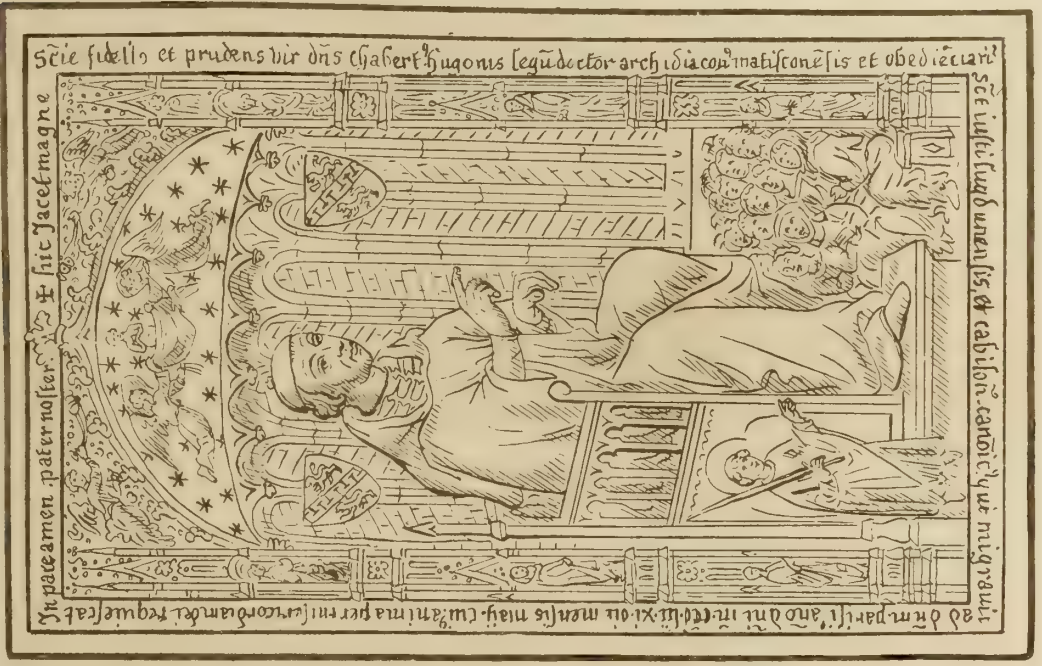 ✠ hic Jacet magne
scīe fidelis et prudens vir dn̄s chabert' hugonis legū doctor archidiacon' matisconēsis et obediēciari'
scē iusti lugdunensis, et cabiloñ. canōic' qui migravit
ad dn̄m. parisi' año dn̄i m. ccc. lii. xi. die mensis maij. cui' anima per misericordiam dei requiescat
In pace amen pater noster